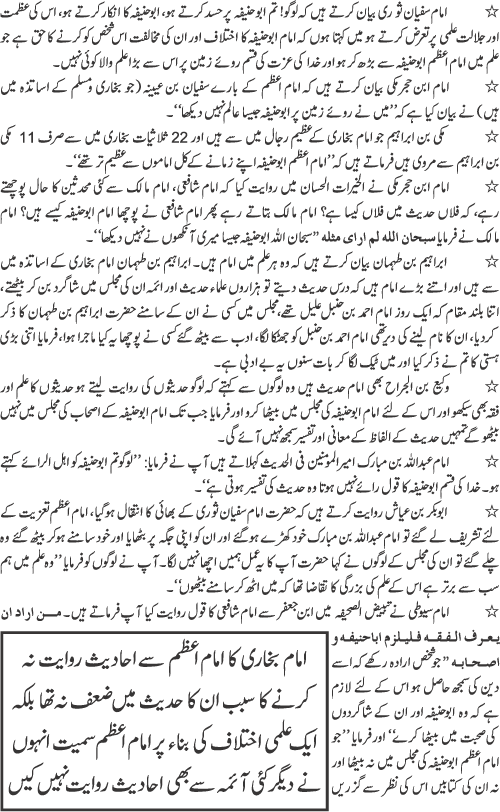 ☆ امام سفیان ثوری بیان کرتے ہیں کہ لوگو! تم ابوحنیفہ پر حسد کرتے ہو، ابوحنیفہ کا انکار کرتے ہو، اس کی عظمت
اور جلالت علمی پر تعرض کرتے ہو میں کہتا ہوں کہ امام اعظم ابوحنیفہ کا اختلاف اور ان کی مخالفت اس شخص کو کرنے کا حق ہے جو
علم میں امام اعظم ابوحنیفہ سے بڑھ کر ہو اور خدا کی عزت کی قسم روئے زمین پر اس سے بڑا علم والا کوئی نہیں۔
☆ امام ابن حجر مکی بیان کرتے ہیں کہ امام اعظم کے بارے سفیان بن عیینہ (جو بخاری و مسلم کے اساتذہ میں
ہیں) نے بیان کیا ہے کہ ’’میں نے روئے زمین پر ابوحنیفہ جیسا عالم نہیں دیکھا‘‘۔
☆ مکی بن ابراہیم جو امام بخاری کے عظیم رجال میں سے ہیں اور 22 ثلاثیات بخاری میں سے صرف 11 مکی
بن ابراہیم سے مروی ہیں فرماتے ہیں کہ ’’امام اعظم ابوحنیفہ اپنے زمانے کے کل اماموں سے عظیم تر تھے‘‘۔
☆ امام ابن حجر مکی نے الخیرات الحسان میں روایت کیا کہ امام شافعی، امام مالک سے کئی محدثین کا حال پوچھتے
رہے، کہ فلاں حدیث میں فلاں کیسا ہے؟ امام مالک بتاتے رہے پھر امام شافعی نے پوچھا امام ابوحنیفہ کیسے ہیں؟ امام
مالک نے فرمایا سبحان الله لم ارای مثله ’’سبحان اللہ ابوحنیفہ جیسا میری آنکھوں نے نہیں دیکھا‘‘۔
☆ ابراہیم بن طہمان بیان کرتے ہیں کہ وہ ہر علم میں امام ہیں۔ ابراہیم بن طہمان امام بخاری کے اساتذہ میں
سے ہیں اور اتنے بڑے امام ہیں کہ درس حدیث دیتے تو ہزاروں علماء حدیث اور ائمہ ان کی مجلس میں شاگرد بن کر بیٹھتے،
اتنا بلند مقام کہ ایک روز امام احمد بن حنبل علیل تھے، مجلس میں کسی نے ان کے سامنے حضرت ابراہیم بن طہمان کا ذکر
کردیا، ان کا نام لینے کی دیر تھی امام احمد بن حنبل کو جھٹکا لگا، ادب سے بیٹھ گئے کسی نے پوچھا یہ کیا ماجرا ہوا، فرمایا اتنی بڑی
ہستی کا تم نے ذکر کیا اور میں ٹیک لگا کر بات سنوں یہ بے ادبی ہے۔
☆ وکیع بن الجراح بھی امام حدیث ہیں وہ لوگوں سے کہتے کہ لوگو حدیثوں کی روایت لیتے ہو حدیثوں کا علم اور
فقہ بھی سیکھو اور اس کے لئے امام ابوحنیفہ کی مجلس میں بیٹھا کرو اور فرمایا جب تک امام ابوحنیفہ کے اصحاب کی مجلس میں نہیں
بیٹھو گے تمہیں حدیث کے الفاظ کے معانی اور تفسیر سمجھ نہیں آئے گی۔
☆ امام عبداللہ بن مبارک امیرالمومنین فی الحدیث کہلاتے ہیں آپ نے فرمایا: ’’لوگو تم ابوحنیفہ کو اہل الرائے کہتے
ہو۔ خدا کی قسم ابوحنیفہ کا قول رائے نہیں ہوتا وہ حدیث کی تفسیر ہوتی ہے‘‘۔
☆ ابوبکر بن عیاش روایت کرتے ہیں کہ حضرت امام سفیان ثوری کے بھائی کا انتقال ہوگیا، امام اعظم تعزیت کے
لئے تشریف لے گئے تو امام عبداللہ بن مبارک خود کھڑے ہوگئے اور ان کو اپنی جگہ پر بٹھایا اور خود سامنے ہوکر بیٹھ گئے وہ
چلے گئے تو ان کی مجلس کے لوگوں نے کہا حضرت آپ کا یہ عمل ہمیں اچھا نہیں لگا۔ آپ نے لوگوں کو فرمایا ’’وہ علم میں ہم
سب سے برتر ہے اس کے علم کی بزرگی کا تقاضا تھا کہ میں اٹھ کر سامنے بیٹھوں‘‘۔
☆ امام سیوطی نے تبییض الصحیفہ میں ابن جعفر سے امام شافعی کا قول روایت کیا آپ فرماتے ہیں۔ من اراد ان
یعرف الفقه فلیلزم اباحنیفه و
اصحابه ’’جو شخص ارادہ رکھے کہ اسے
دین کی سمجھ حاصل ہو اس کے لئے لازم
ہے کہ وہ ابوحنیفہ اور ان کے شاگردوں
کی صحبت میں بیٹھا کرے‘‘ اور فرمایا ’’جو
امام ابوحنیفہ کی مجلس میں نہ بیٹھا اور
نہ ان کی کتابیں اس کی نظر سے گزریں
امام بخاری کا امام اعظم سے احادیث روایت نہ
کرنے کا سبب ان کا حدیث میں ضعف نہ تھا بلکہ
ایک علمی اختلاف کی بناء پر امام اعظم سمیت انہوں
نے دیگر کئی آئمہ سے بھی احادیث روایت نہیں کیں